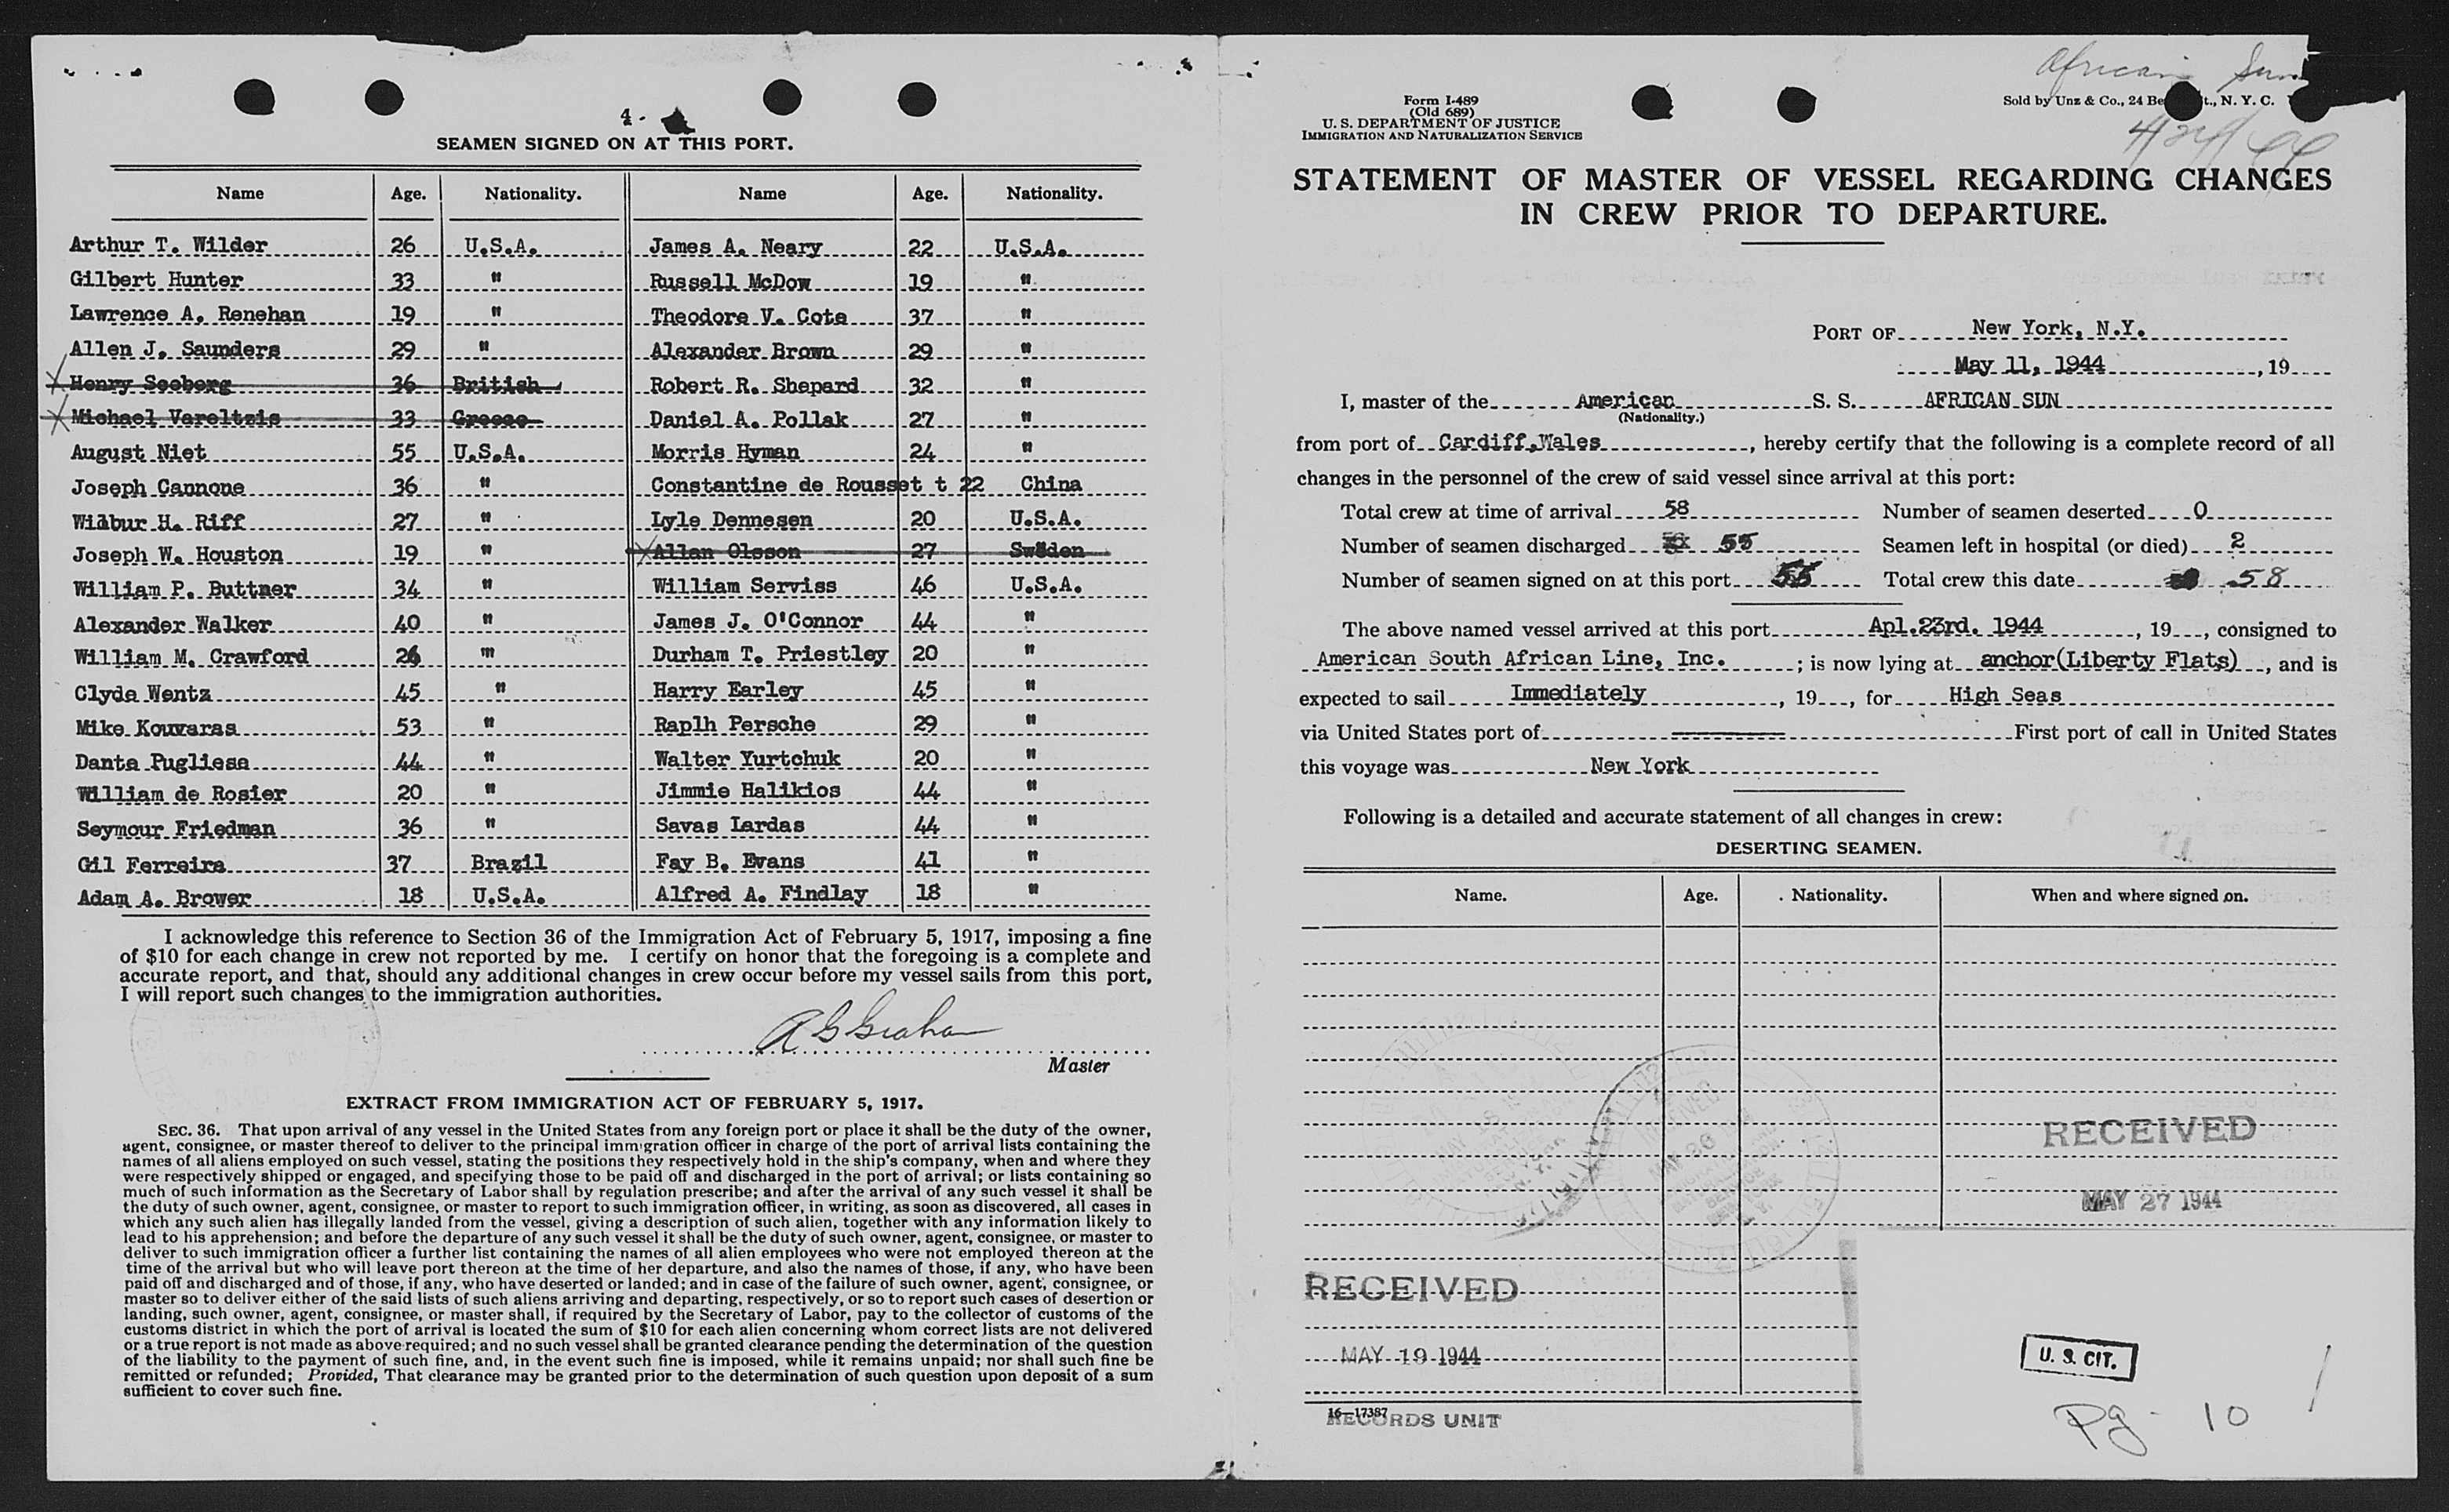 4.
SEAMEN SIGNED ON AT THIS PORT.
Name Age. Nationality. Name Age. Nationality.
Arthur T. Wilder 26 U.S.A. James A. Neary 22 U.S.A.
Gilbert Hunter 33 " Russell McDow 19 "
Lawrence A. Renehan 19 " Theodore V. Cote 37 "
Allen J. Saunders 29 " Alexander Brown 29 "
X Henry Seeberg 36 British Robert R. Shepard 32 "
X Michael Vareltzis 33 Greece Daniel A. Pollak 27 "
August Niet 55 U.S.A. Morris Hyman 24 "
Joseph Cannone 36 " Constantine de Rousset t 22 China
Wilbur H. Riff 27 " Lyle Dennesen 20 U.S.A.
Joseph W. Houston 19 " X Allan Olsson 27 Sweden
William P. Buttner 34 " William Serviss 46 U.S.A.
Alexander Walker 40 " James J. O'Connor 44 "
William M. Crawford 26 " Durham T. Priestley 20 "
Clyde Wentz 45 " Harry Earley 45 "
Mike Kouvaras 53 " Raplh Persche 29 "
Dante Pugliese 44 " Walter Yurtchuk 20 "
William de Rosier 20 " Jimmie Halikios 44 "
Seymour Friedman 36 " Savas Lardas 44 "
Gil Ferreira 37 Brazil Fay B. Evans 41 "
Adam A. Brower 18 U.S.A. Alfred A. Findlay 18 "
I acknowledge this reference to Section 36 of the Immigration Act of February 5, 1917, imposing a fine
of $10 for each change in crew not reported by me. I certify on honor that the foregoing is a complete and
accurate report, and that, should any additional changes in crew occur before my vessel sails from this port,
I will report such changes to the immigration authorities.
A G Graham
Master
EXTRACT FROM IMMIGRATION ACT OF FEBRUARY 5, 1917.
SEC. 36. That upon arrival of any vessel in the United States from any foreign port or place it shall be the duty of the owner,
agent, consignee, or master thereof to deliver to the principal immigration officer in charge of the port of arrival lists containing the
names of all aliens employed on such vessel, stating the positions they respectively hold in the ship's company, when and where they
were respectively shipped or engaged, and specifying those to be paid off and discharged in the port of arrival; or lists containing so
much of such information as the Secretary of Labor shall by regulation prescribe; and after the arrival of any such vessel it shall be
the duty of such owner, agent, consignee, or master to report to such immigration officer, in writing, as soon as discovered, all cases in
which any such alien has illegally landed from the vessel, giving a description of such alien, together with any information likely to
lead to his apprehension; and before the departure of any such vessel it shall be the duty of such owner, agent, consignee, or master to
deliver to such immigration officer a further list containing the names of all alien employees who were not employed thereon at the
time of the arrival but who will leave port thereon at the time of her departure, and also the names of those, if any, who have been
paid off and discharged and of those, if any, who have deserted or landed; and in case of the failure of such owner, agent, consignee, or
master so to deliver either of the said lists of such aliens arriving and departing, respectively, or so to report such cases of desertion or
landing, such owner, agent, consignee, or master shall, if required by the Secretary of Labor, pay to the collector of customs of the
customs district in which the port of arrival is located the sum of $10 for each alien concerning whom correct lists are not delivered
or a true report is not made as above required; and no such vessel shall be granted clearance pending the determination of the question
of the liability to the payment of such fine, and, in the event such fine is imposed, while it remains unpaid; nor shall such fine be
remitted or refunded; Provided, That clearance may be granted prior to the determination of such question upon deposit of a sum
sufficient to cover such fine.
African Sun
Form I-489
(Old 689)
U. S. DEPARTMENT OF JUSTICE
IMMIGRATION AND NATURALIZATION SERVICE
Sold by Unz & Co., 24 Be t., N. Y. C.
4/24/44
STATEMENT OF MASTER OF VESSEL REGARDING CHANGES
IN CREW PRIOR TO DEPARTURE.
PORT OF New York, N.Y.
May 11, 1944, 19
I, master of the American S. S. AFRICAN SUN
(Nationality.)
from port of Cardiff, Wales, hereby certify that the following is a complete record of all
changes in the personnel of the crew of said vessel since arrival at this port:
Total crew at time of arrival 58 Number of seamen deserted 0
Number of seamen discharged 55 Seamen left in hospital (or died) 2
Number of seamen signed on at this port 55 Total crew this date 58
The above named vessel arrived at this port Apl.23rd. 1944, 19, consigned to
American South African Line, Inc. ; is now lying at anchor(Liberty Flats), and is
expected to sail Immediately, 19, for High Seas
via United States port of First port of call in United States
this voyage was New York
Following is a detailed and accurate statement of all changes in crew:
DESERTING SEAMEN.
Name. Age. Nationality. When and where signed on.
RECEIVED
MAY 27 1944
RECEIVED
MAY 19 1944
16—17387
RECORDS UNIT
U. S. CIT.
Pg - 10